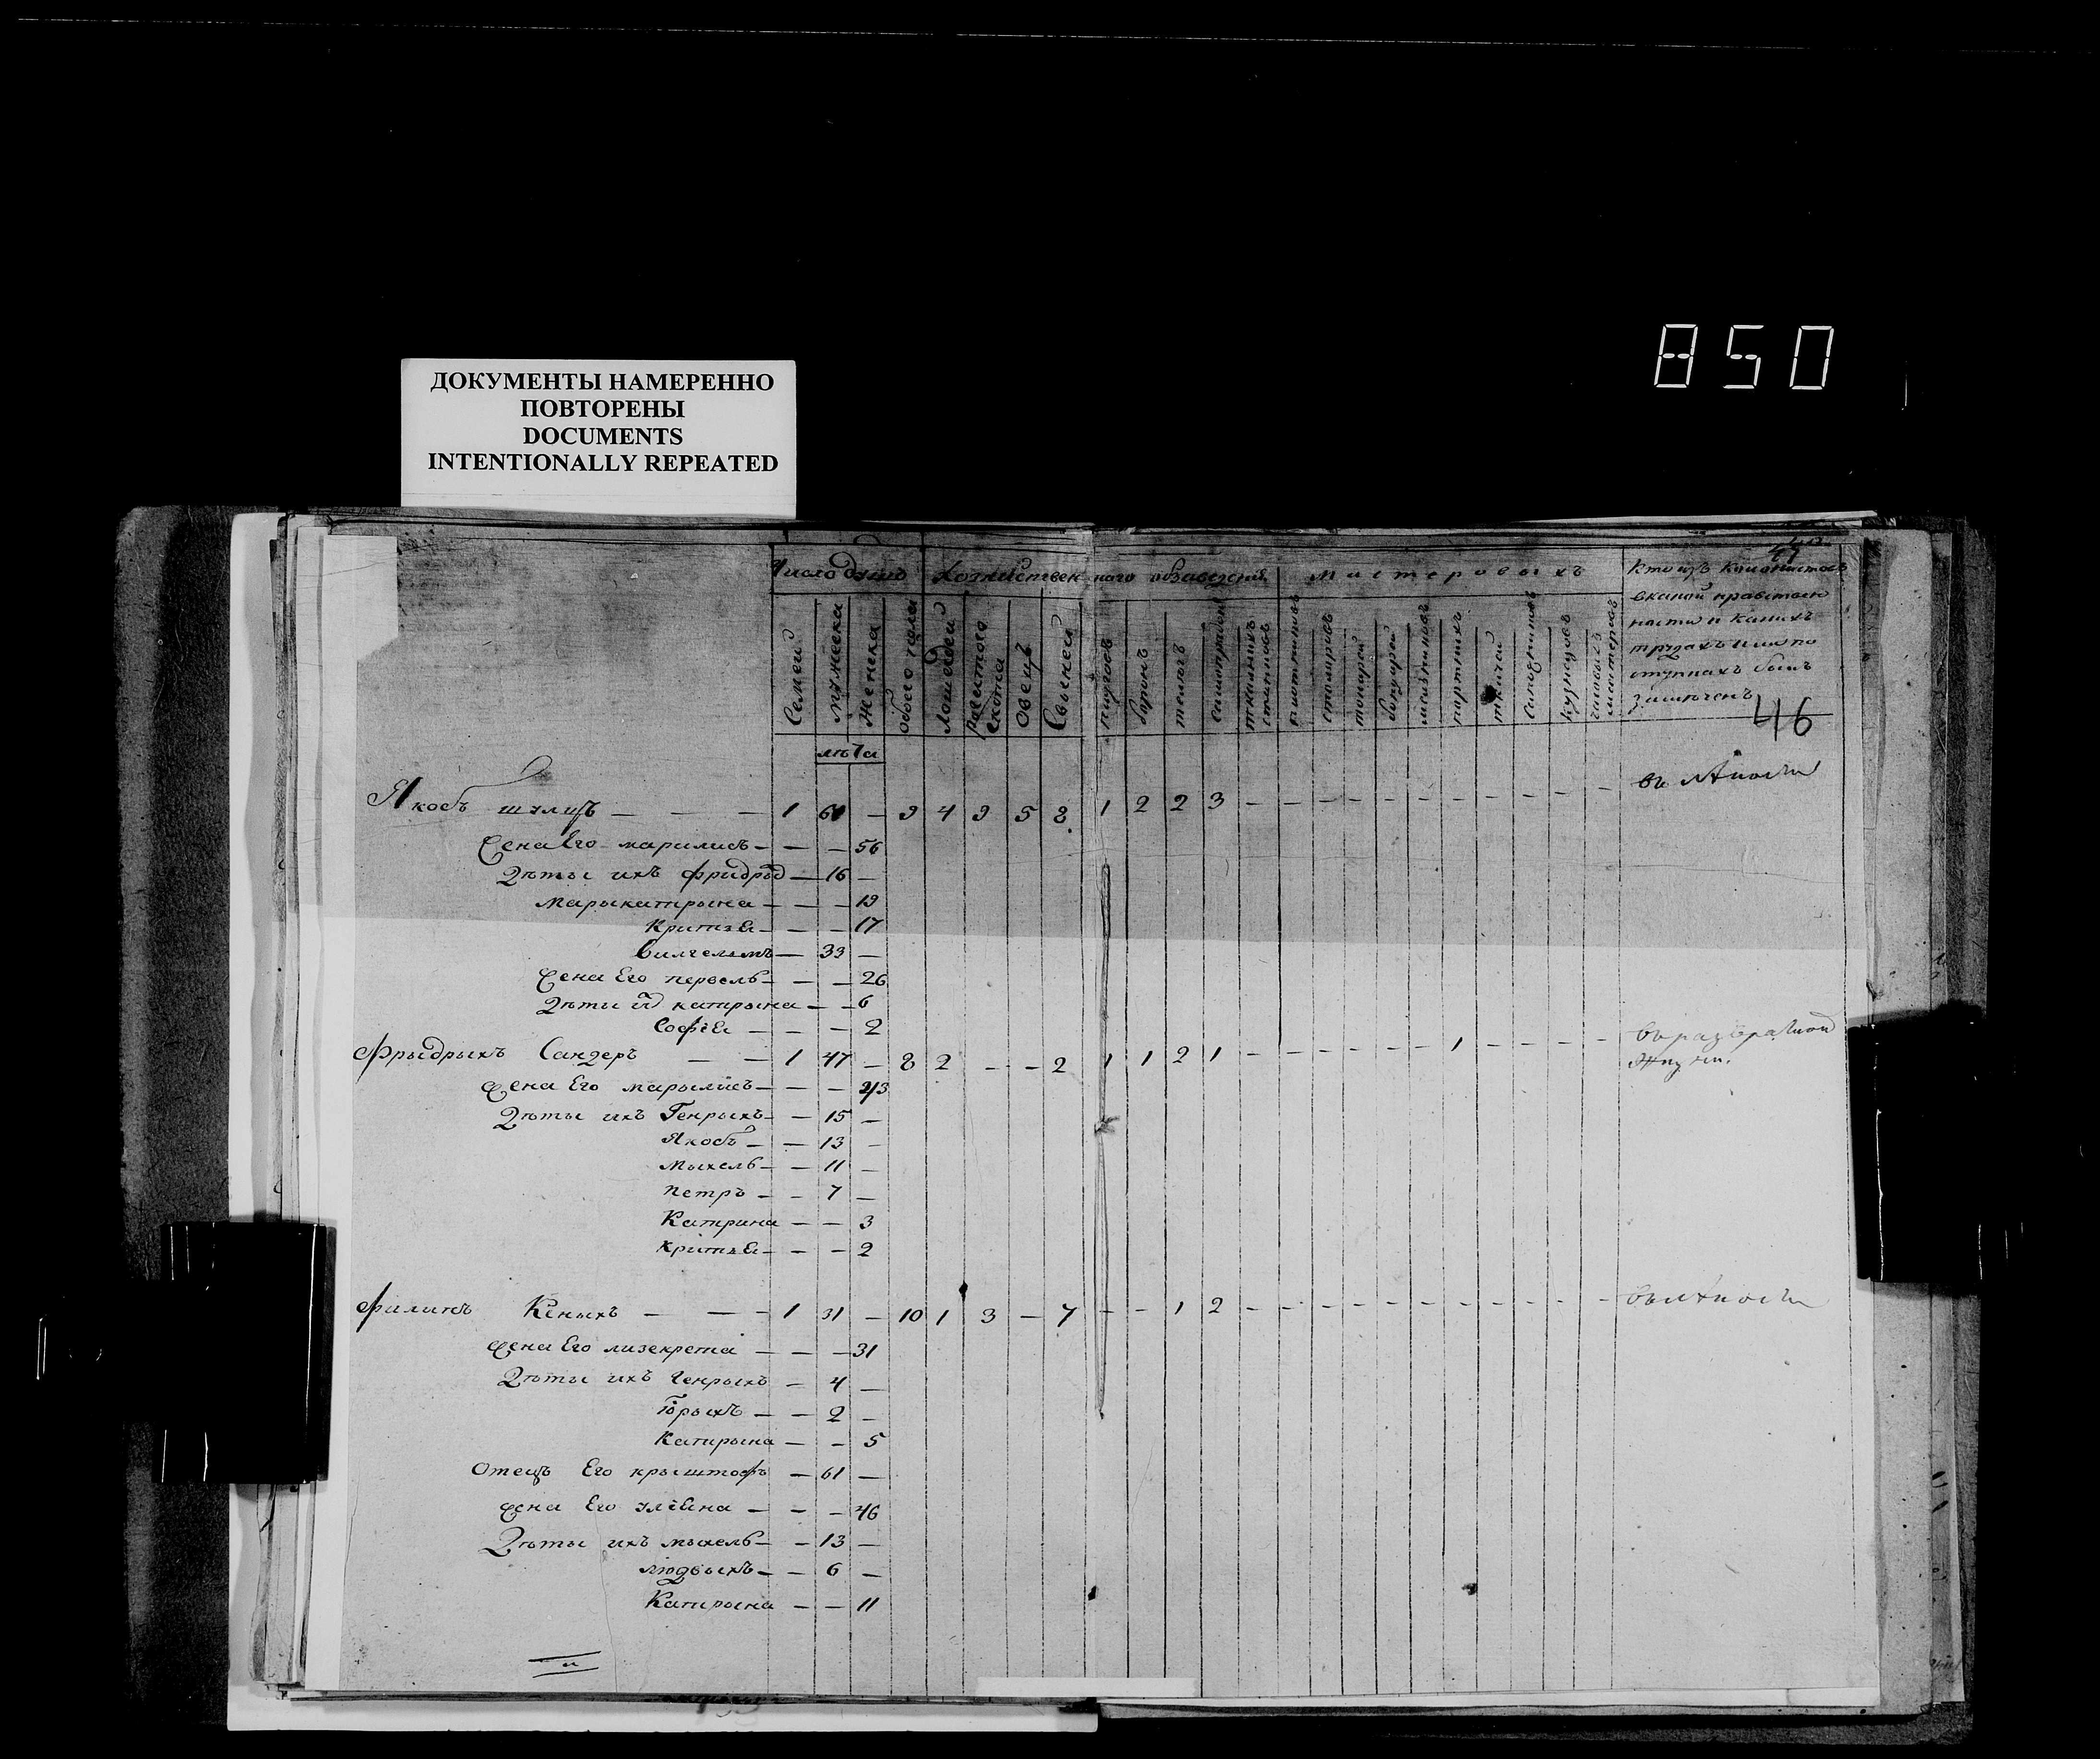 850
ДОКУМЕНТЫ НАМЕРЕННО
ПОВТОРЕНЫ
DOCUMENTS
INTENTIONALLY REPEATED
Число душъ Хозяйственнаго обзаведения Мастеровыхъ
Кто изъ Колонистовъ
в какой нравствен
ности и какихъ
трудахъ или по
ступкахъ былъ
замеченъ
46
Семей
Мужеска
Женска
Обоего пола
Лошадей
Рогатого скота
Овецъ
Свыней
плуговъ
боронъ
телегъ
самопрялокъ
плотниковъ
столяровъ
токарей
бондарей
портныхъ
ткачей
Сапожниковъ
кузнецовъ
лѣта
Якобъ шулцъ — — — 1 61 — 9 4 9 5 8 1 2 2 3 - - - - - - - - - - -
Жена Его марилисъ — — — 56
Дѣты ихъ фридрих — 16 —
Марыкатрына — — — 19
Критъя — — — 17
Вилгелмъ — 33 —
Жена Его — — — 26
Дѣты их катрына — — 6
Софъя — — — 2
Фрыдрыхъ Сандеръ — — 1 47 — 8 2 - - 2 1 1 2 1 - - - - - - 1 - - - - въ развратной
жизни.
Жена Его марылисъ — — — 43
Дѣты ихъ Генрыхъ — — 15 —
Якобъ — — 13 —
Мыхель — — 11 —
Петръ — — 7 —
Катрина — — 3
Критъя — — — 2
Филипъ Кеныхъ — — — 1 31 — 10 1 3 — 7 - - 1 2 - - - - - - - - - - -
Жена Его лизекрета — — — 31
Дѣты ихъ генрыхъ — 4 —
Іорыхъ — — 2 —
Катрына — — 5
Отецъ Его крыштофъ — 61 —
жена Его — — — 46
Дѣты ихъ мыхель — — 13 —
людвыхъ — — 6 —
Катрына — — 11